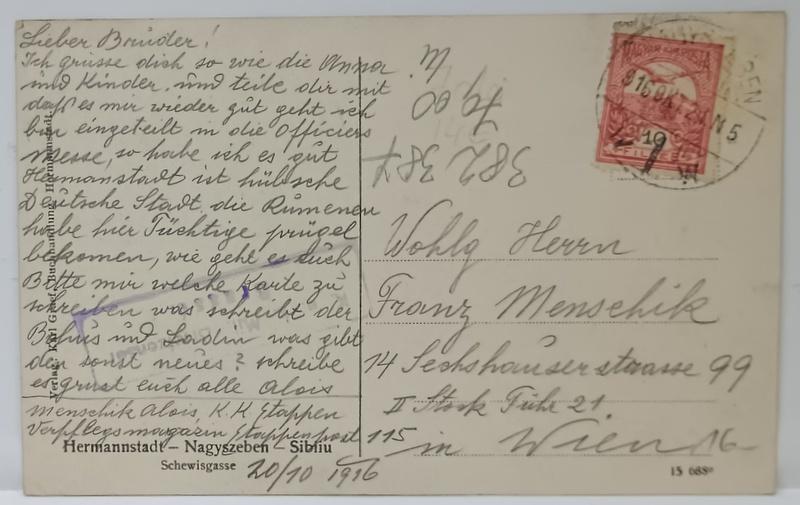 Lieber Bruder!
Ich grüsse dich so wie die Anna
und Kinder, und teile dir mit
daß es mir wieder gut geht ich
bin eingeteilt in die Officiers
Messe, so habe ich es gut
Hermanstadt ist hübsche
Deutsche Stadt, die Rumenen
habe hier Tüchtige prügel
bekomen, wie geht es euch
Bitte mir welche Karte zu
schreiben was schreibt der
und Ladin was gibt
den sonst neues? schreibe
es grust euch alle Alois
Menschik Alois, K.K. Etappen
Verpflegsmagazin Etappenpost
115
20/10 1916
Verlag: Karl Graef, Buchhandlung, Hermannstadt.
Hermannstadt – Nagyszeben – Sibiiu
Schewisgasse
15 688
382 387
MAGYAR KIR. POSTA
916 OKT. 21 N 5
10
FILLÉR
Wohlg Herrn
Franz Menschik
14 Sechshauserstraasse 99
II Stock Tühr 21
in Wien 16